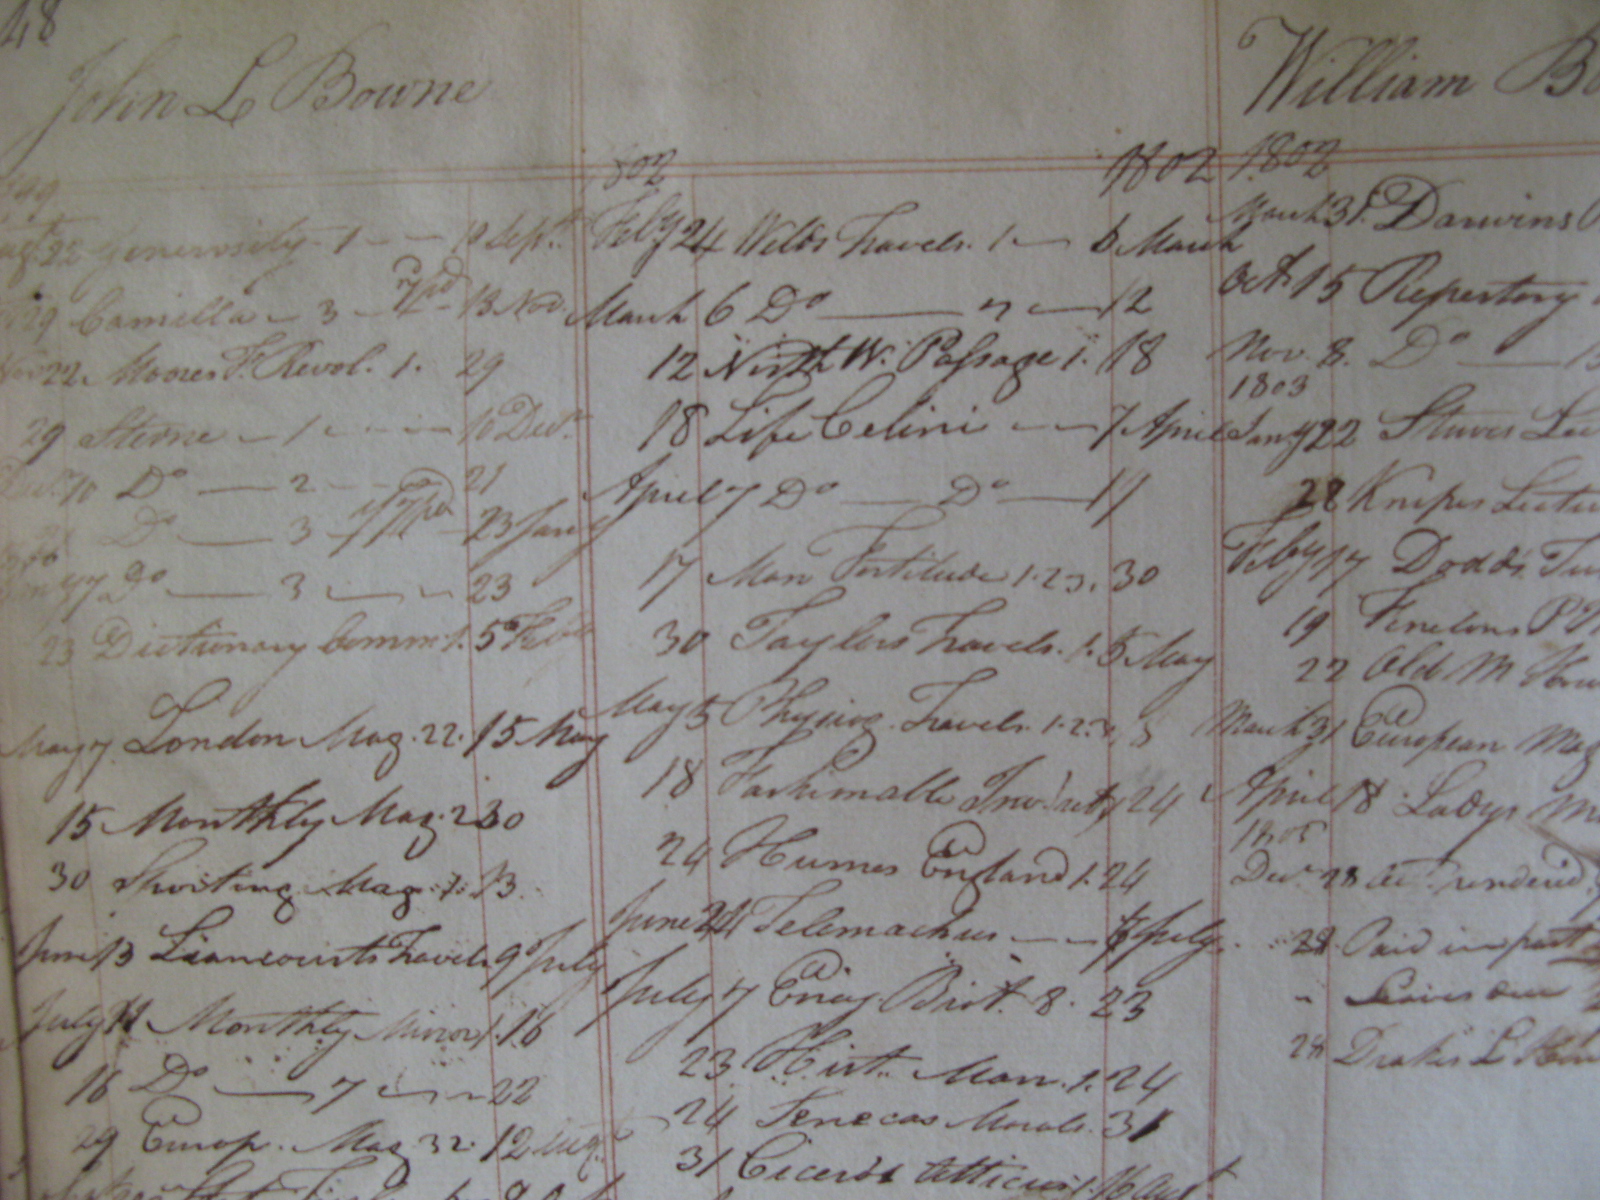 48
John L Bowne
Augt 22 Generosity 1 - - 10 Sept.
29 Camilla - 3 - 13 Nov.
Nov 22 Moores F. Revol. 1. 29
29 Sterne - 1 - - - 10 Decr.
Decr. 10 Do - 2 - - 21
Do - 3 - 23 Jany
27 Do - 3 - - 23
23 Dictionary Comm. 1. 5 Feb
May 7 London Mag. 22. 15 May
15 Monthly Mag. 2 30
30 Sporting Mag. 7. 13.
June 13 Liancourts Travels 9 July
July 11 Monthly Mirror 1. 16
16 Do - 7 - - 22
29 Europ. Mag 32. 12 Aug.
1802 1802
Feby 24 Welds Travels. 1. - 6 March
March 6 Do - " - 12
12 North W. Passage 1. 18
18 Life Celini - - 7 April
April 7 Do - Do - 17
17 Man Fortitude 1.2.3. 30
30 Taylors Travels. 1. 5 May
May 5 Travels. 1.2.3.
18 Fashionable 24
24 Humes England 1. 24
June 24 Telemachus - - 7 July.
July 7 Ency. Brit. 8. 23
23 Hist. Man. 1. 24
24 Senecas Morals. 31
31 Ciceros Atticus 1. 16 Aust
William Bo
1802
March 31. Darwins
Oct. 15 Repertory
Nov. 8. Do -
1803
Jany 22 Stuves Lec
28 Knipes Lectu
Feby 17 Dodds
19 Fenelons
22 Old M
March 31 European Mag
April 18 Ladys M
1805
Decr. 28 act. rendered.
28 Paid in part
- Leaves due
28 Drakes L